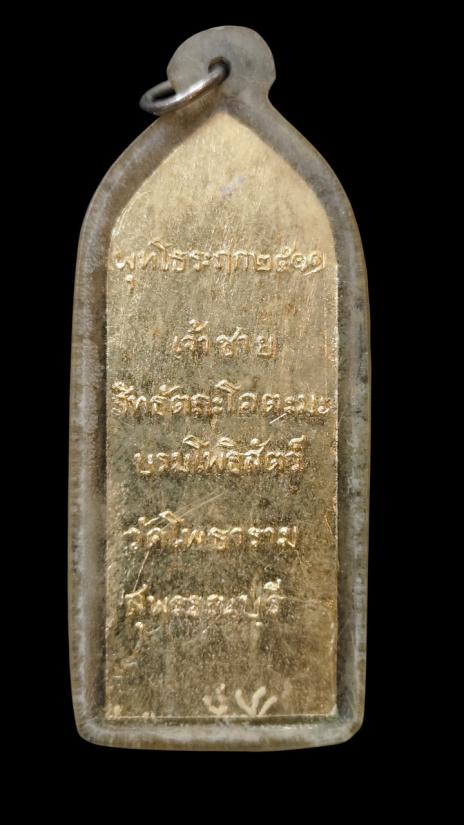 พุทโธระฦก๒๕๑๑
เจ้าชาย
สิทธัตถะโคตะมะ
บรมโพธิสัตว์
วัดโพธาราม
สุพรรณบุรี